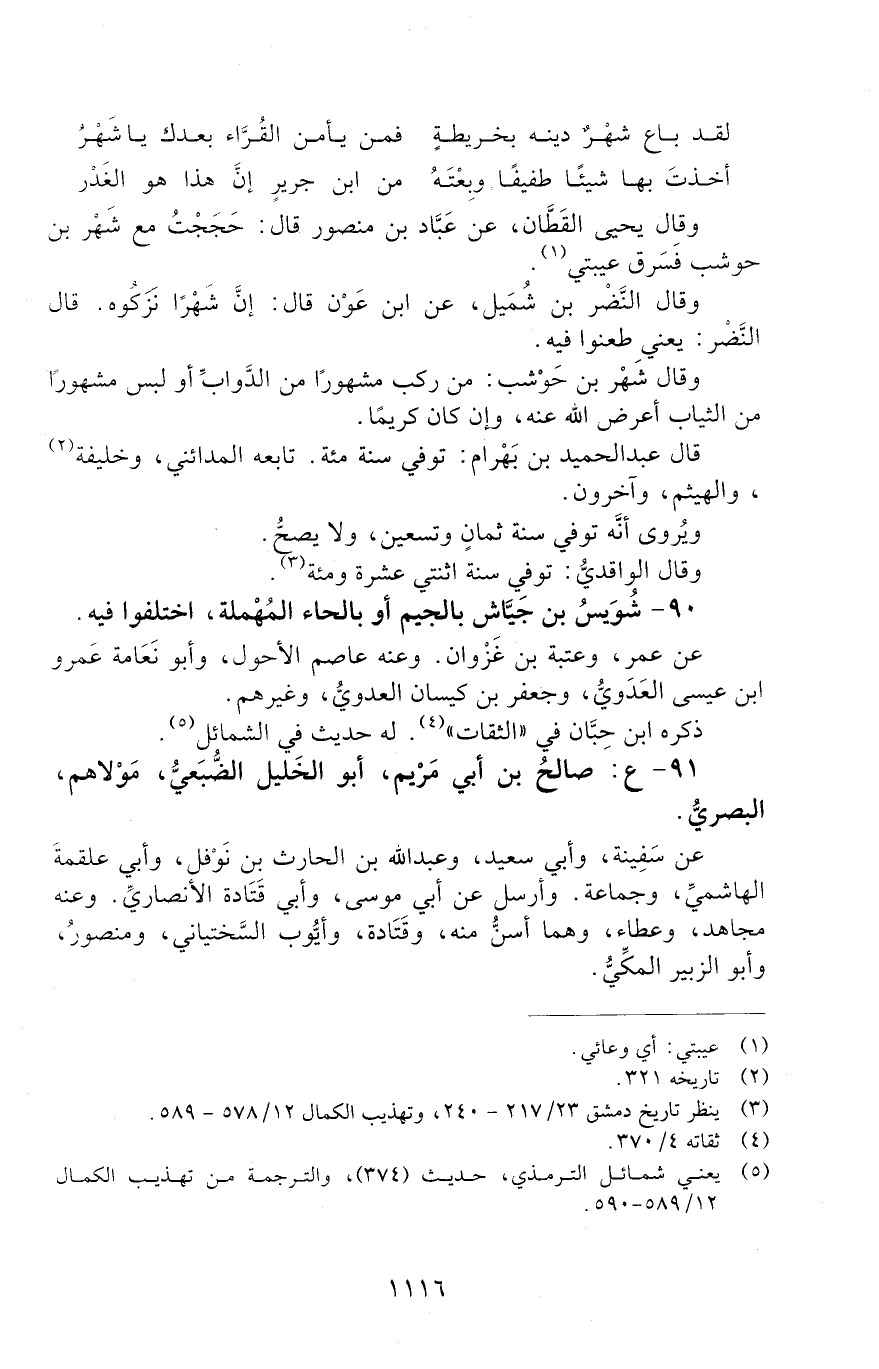 لقد باع شهْرٌ دينه بخريطةٍ فمن يأمن القُرَّاء بعدك يا شَهْرُ
أخذتَ بها شيئًا طفيفًا وبِعْتَهُ من ابن جريرٍ إنَّ هذا هو الغَدْر
وقال يحيى القَطَّان، عن عَبَّاد بن منصور قال: حَجَجْتُ مع شَهْر بن
حوشب فَسَرق عيبتي(١).
وقال النَّضْر بن شُمَيل، عن ابن عَوْن قال: إنَّ شَهْرًا نَزَكُوه. قال
النَّضْر: يعني طعنوا فيه.
وقال شَهْر بن حَوْشب: من ركب مشهورًا من الدَّوابِّ أو لبس مشهورًا
من الثياب أعرض الله عنه، وإن كان كريمًا.
قال عبدالحميد بن بَهْرام: توفي سنة مئة. تابعه المدائني، وخليفة(٢)
، والهيثم، وآخرون.
ويُروى أنَّه توفي سنة ثمانٍ وتسعين، ولا يصحُّ.
وقال الواقديُّ: توفي سنة اثنتي عشرة ومئة(٣).
٩٠- شُوَيسُ بن جَيَّاش بالجيم أو بالحاء المُهْملة، اختلفوا فيه.
عن عمر، وعتبة بن غَزْوان. وعنه عاصم الأحول، وأبو نَعَامة عَمرو
ابن عيسى العَدَويُّ، وجعفر بن كيسان العدويُّ، وغيرهم.
ذكره ابن حِبَّان في «الثقات»(٤). له حديث في الشمائل(٥).
٩١- ع: صالحُ بن أبي مَرْيم، أبو الخَليل الضُّبَعيُّ، مَوْلاهم،
البصريُّ.
عن سَفِينة، وأبي سعيد، وعبدالله بن الحارث بن نَوْفل، وأبي علقمةَ
الهاشميِّ، وجماعة. وأرسل عن أبي موسى، وأبي قَتَادة الأنصاريِّ. وعنه
مجاهد، وعطاء، وهما أسنُّ منه، وقَتَادة، وأيُّوب السَّختياني، ومنصورُ،
وأبو الزبير المكِّيُّ.
(١) عيبتي: أي وعائي.
(٢) تاريخه ٣٢١.
(٣) ينظر تاريخ دمشق ٢٣/ ٢١٧ - ٢٤٠، وتهذيب الكمال ١٢/ ٥٧٨ - ٥٨٩.
(٤) ثقاته ٤/ ٣٧٠.
(٥) يعني شمائل الترمذي، حديث (٣٧٤)، والترجمة من تهذيب الكمال
١٢/ ٥٨٩-٥٩٠.
١١١٦